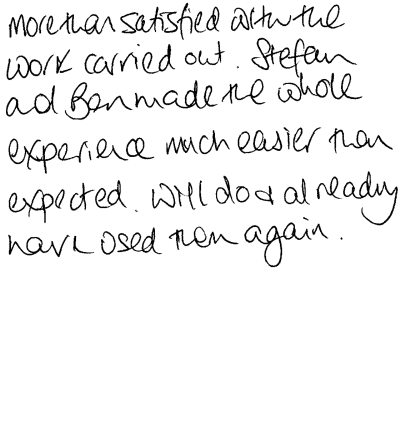 More than satisfied with the
work carried out. Stefan
and Ben made the whole
experience much easier than
expected. Will do & already
have used them again.